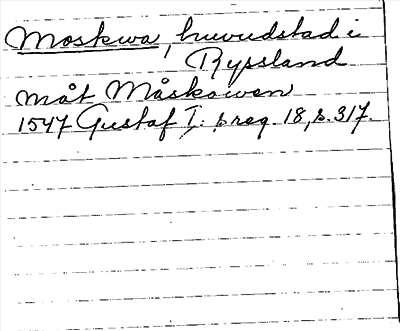 Moskwa, huvudstad i
Ryssland
måt Måskowen
1547 Gustaf I: s reg. 18, s. 317.